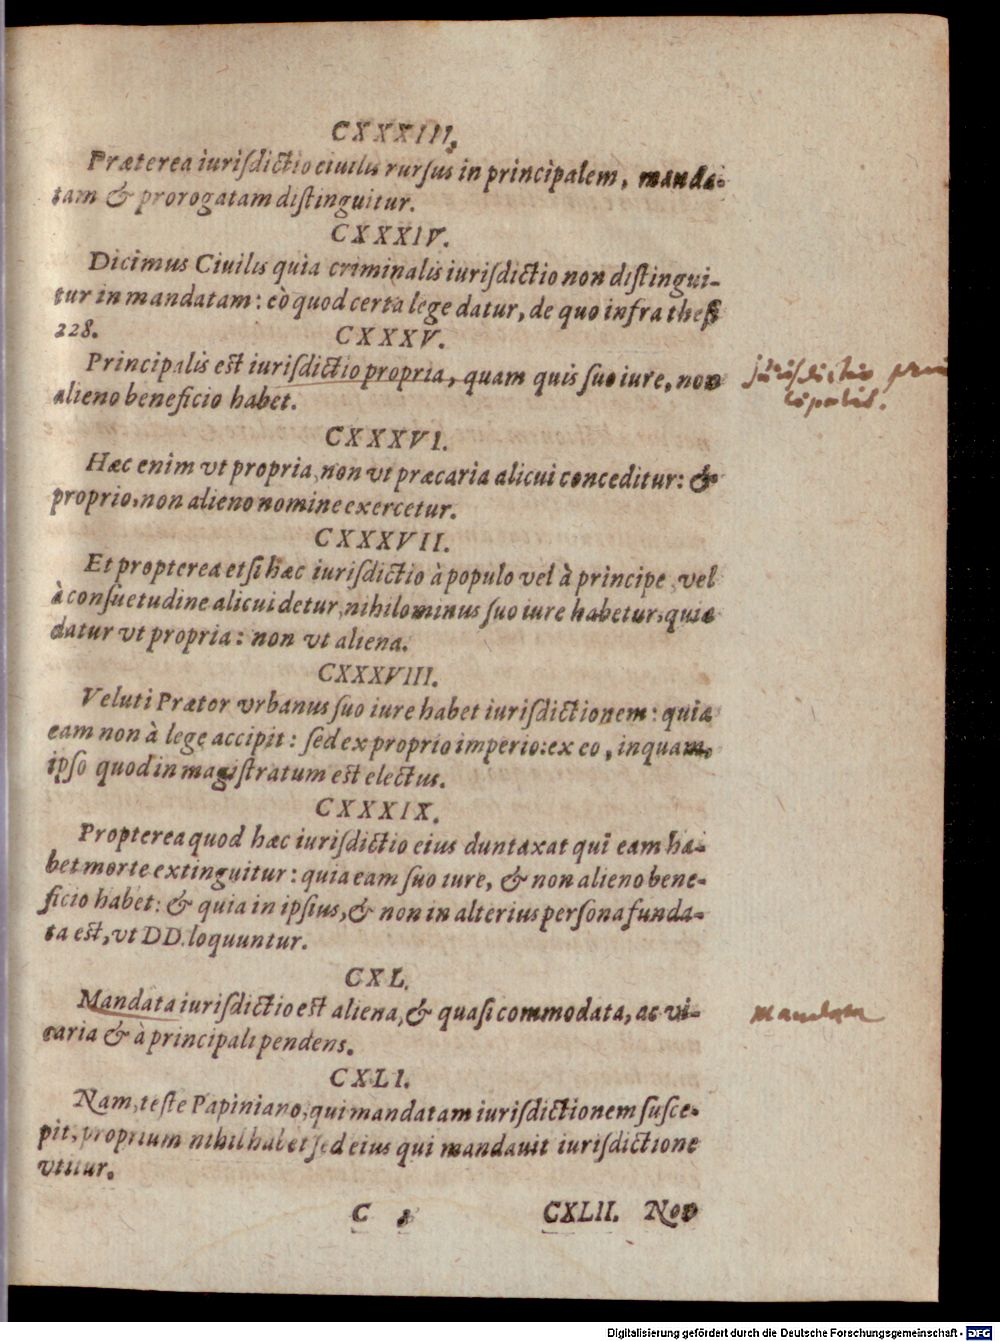 CXXXIII.
Præterea iurisdictio ciuilis rursus in principalem, manda-
tam & prorogatam distinguitur.
CXXXIV.
Dicimus Ciuilis quia criminalis iurisdictio non distingui-
tur in mandatam: eò quod certa lege datur, de quo infra thes
228.
CXXXV.
Principalis est iurisdictio propria, quam quis suo iure, non
alieno beneficio habet.
jurisdictio prin
cipalis.
CXXXVI.
Hæc enim vt propria, non vt præcaria alicui conceditur: &
proprio, non alieno nomine exercetur.
CXXXVII.
Et propterea etsi hæc iurisdictio à populo vel à principe, vel
à consuetudine alicui detur, nihilominus suo iure habetur, quia
datur vt propria: non vt aliena.
CXXXVIII.
Veluti Prætor vrbanus suo iure habet iurisdictionem: quia
eam non à lege accipit: sed ex proprio imperio: ex eo, inquam,
ipso quod in magistratum est electus.
CXXXIX.
Propterea quod hæc iurisdictio eius duntaxat qui eam ha-
bet morte extinguitur: quia eam suo iure, & non alieno bene-
ficio habet: & quia in ipsius, & non in alterius persona funda-
ta est, vt DD. loquuntur.
CXL.
Mandata iurisdictio est aliena, & quasi commodata, ac vi-
caria & à principali pendens.
mandata
CXLI.
Nam, teste Papiniano, qui mandatam iurisdictionem susce-
pit, proprium nihil habet sed eius qui mandauit iurisdictione
vtitur.
C
CXLII. Non
Digitalisierung gefördert durch die Deutsche Forschungsgemeinschaft - DFG